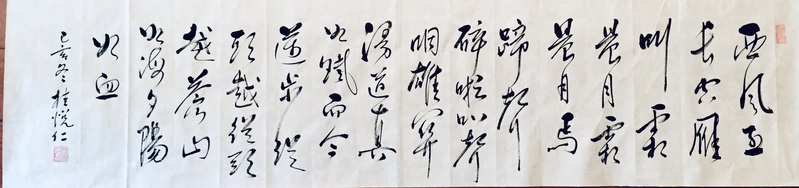 西風烈
長空雁
叫霜
晨月霜
晨月馬
蹄聲
碎喇叭聲
咽雄關
漫道真
如鐵而今
邁步從
頭越從頭
越蒼山
如海夕陽
如血
己亥冬桂悦仁